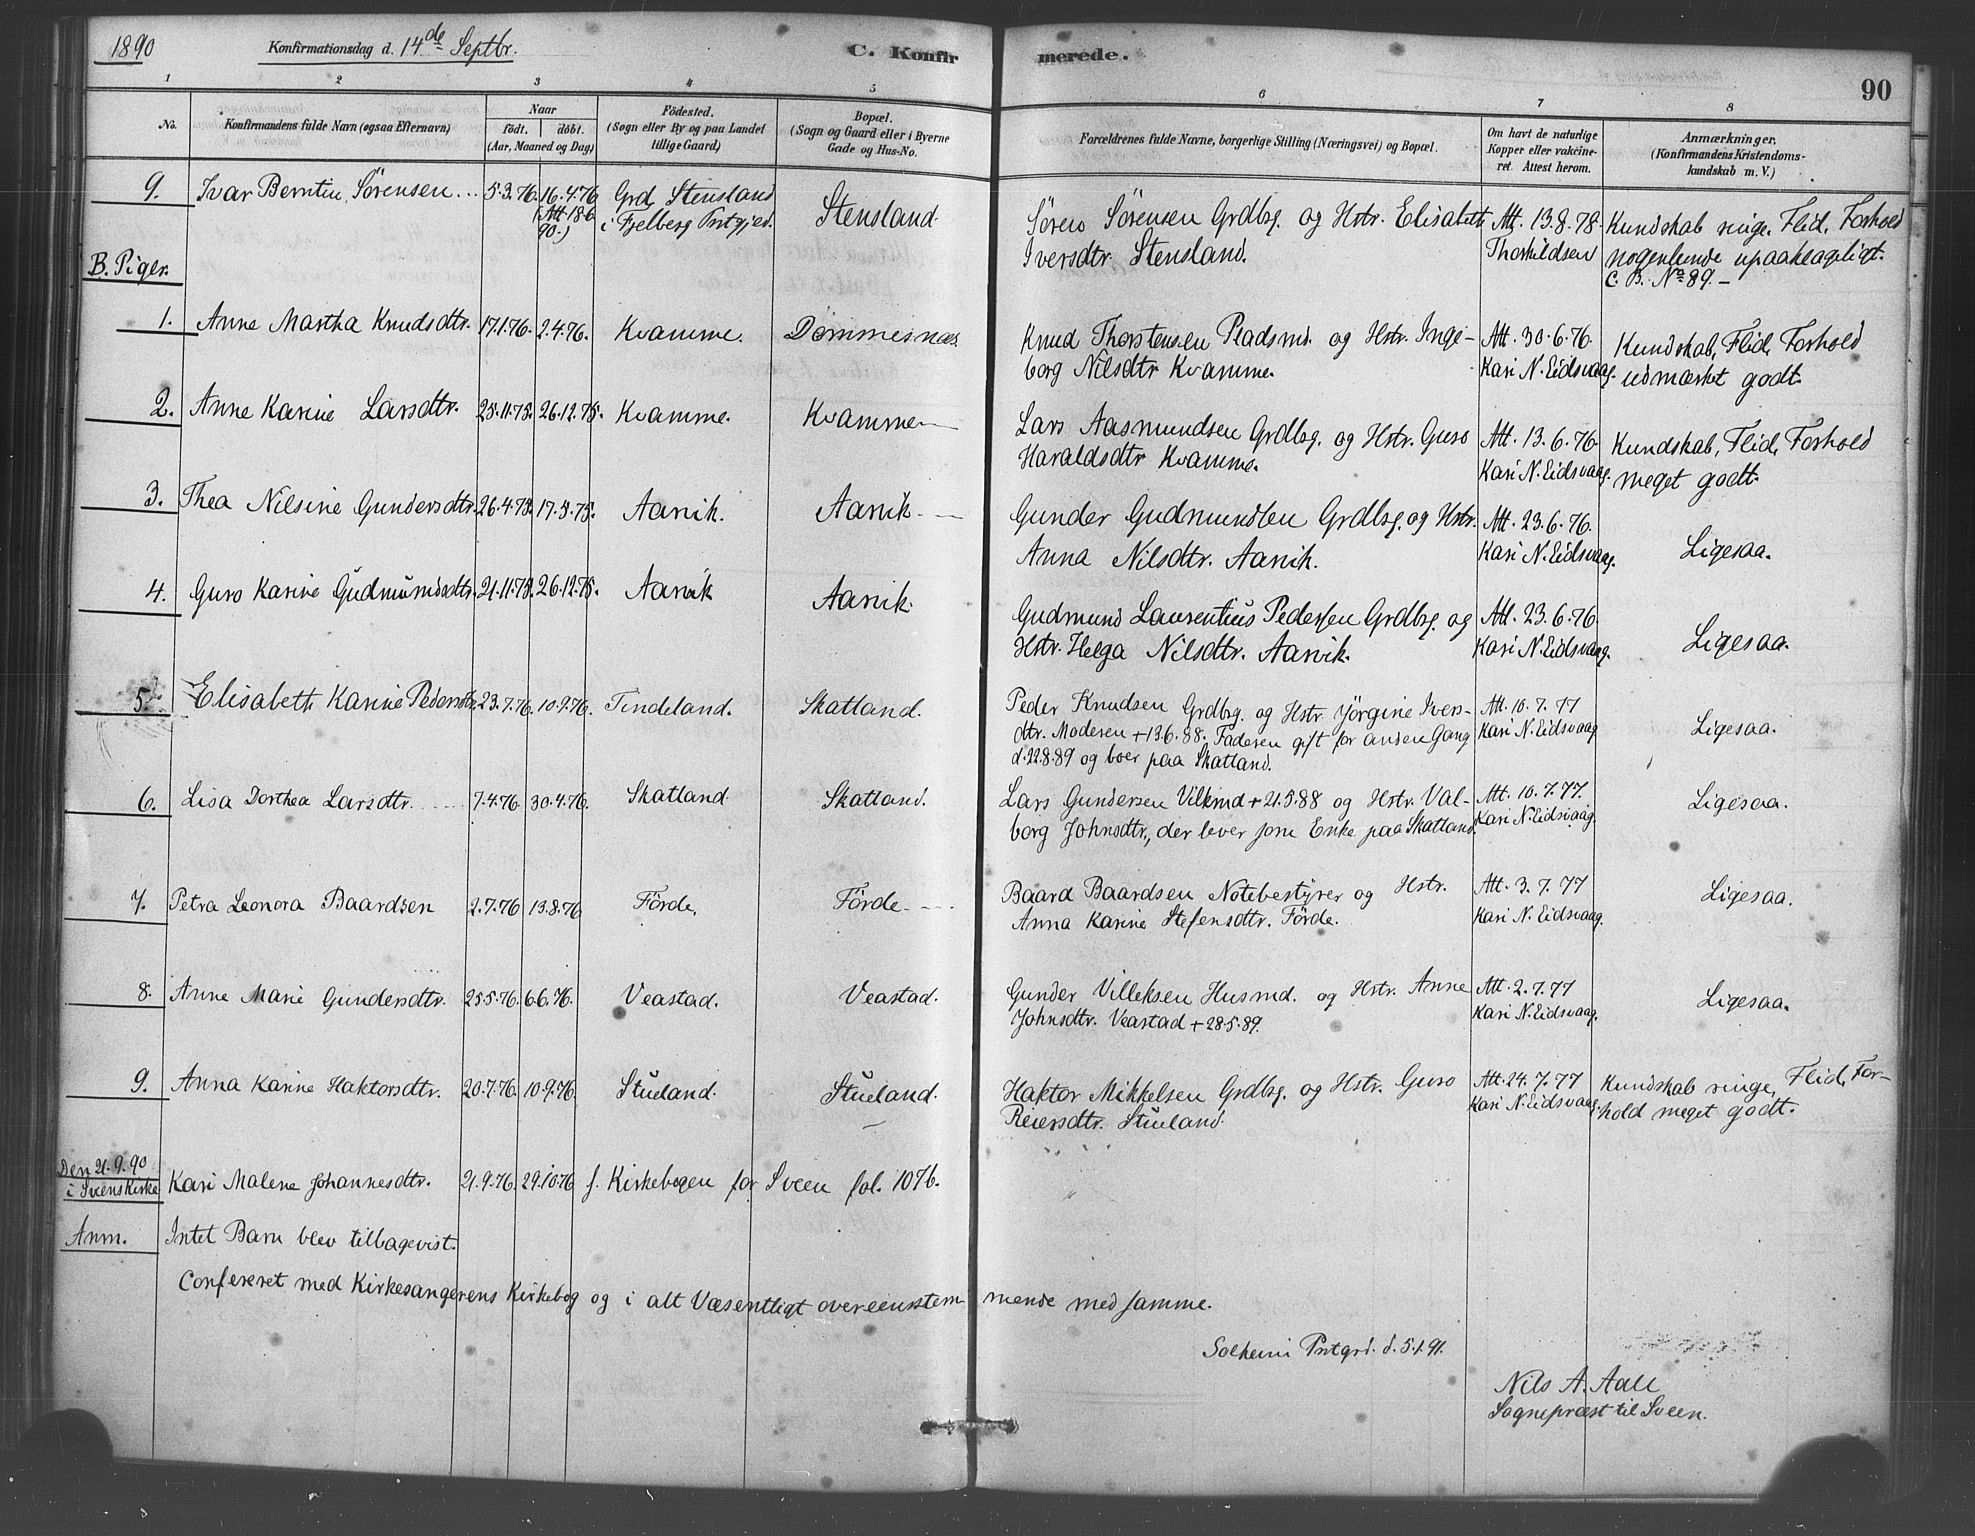 1890 Konfirmationsdag d. 14de Septbr. C. Konfirmerede. 90
1 2 3 4 5 6 7 8
No. Konfirmandens fulde Navn (ogsaa Efternavn) Naar födt. döbt. (Aar, Maaned og Dag) Födested. (Sogn eller By og paa Landet tillige Gaard) Bopæl. (Sogn og Gaard eller i Byerne Gade og Hus-No. Forældrenes fulde Navne, borgerlige Stilling (Næringsvei) og Bopæl. Om havt de naturlige Kopper eller vakcineret. Attest herom. Anmærkninger. (Konfirmandens Kristendomskundskab m. V.)
9. Ivar Berntin Sörensen 5.3.76. 16.4.76 Grd. Stensland Stensland. Sören Sörensen Grdbrg. og Hstr. Elisabeth Att. 13.8.78. Kundskab ringe. Flid, Forhold
(Att. 18.6. 90.) i Fjelberg Prstgjed. Iversdtr. Stensland. Thorkildsen nogenlunde upaaklageligt.
C. B. No 89. –
B. Piger.
1. Anne Martha Knudsdtr. 17.1.76. 2.4.76. Kvamme. Dömmesnæs. Knud Thorstensen Pladsmd. og Hstr. Inge- Att. 30.6.76. Kundskab, Flid, Forhold
borg Nilsdtr Kvamme. Kari N. Eidsvaag. udmærket godt.
2. Anne Karine Larsdtr. 25.11.75. 26.12.75. Kvamme. Kvamme Lars Aasmundsen Grdbrg. og Hstr. Guro Att. 13.6.76 Kundskab, Flid, Forhold
Haraldsdtr Kvamme. Kari N. Eidsvaag. meget godt.
3. Thea Nilsine Gundersdtr. 26.4.75. 17.5.75. Aarvik. Aarvik. Gunder Gudmundsen Grdbrg. og Hstr. Att. 23.6.76. Ligesaa.
Anna Nilsdtr. Aarvik. Kari N. Eidsvaag.
4. Guro Karine Gudmundsdtr. 21.11.75. 26.12.75. Aarvik Aarvik. Gudmund Laurentius Pedersen Grdbrg. og Att. 23.6.76. Ligesaa.
Hstr. Helga Nilsdtr. Aarvik. Kari N. Eidsvaag.
5. Elisabeth Karine Pedersdtr. 23.7.76. 10.9.76. Tindeland. Skatland. Peder Knudsen Grdbrg. og Hstr Jörgine Ivers- Att. 10.7.77 Ligesaa.
dtr. Moderen +13.6.88. Faderen gift for anden Gang Kari N. Eidsvaag
d. 22.8.89 og boer paa Skatland.
6. Lisa Dorthea Larsdtr. 7.4.76. 30.4.76. Skatland. Skatland. Lars Gundersen Vilkmd +21.5.88 og Hstr. Val- Att. 10.7.77. Ligesaa.
borg Johnsdtr., der lever som Enke paa Skatland. Kari N. Eidsvaag.
7. Petra Leonora Baardsen 2.7.76 13.8.76 Förde. Förde. Baard Baardsen Notebestyrer og Hstr. Att. 3.7.77 Ligesaa.
Anna Karine Stefensdtr. Förde. Kari N. Eidsvaag.
8. Anne Marie Gundersdtr. 25.5.76. 6.6.76. Veastad. Veastad. Gunder Villeksen Husmd. og Hstr. Anne Att. 2.7.77 Ligesaa.
Johnsdtr. Veastad +28.5.89. Kari N. Eidsvaag.
9. Anna Karine Haktorsdtr. 20.7.76 10.9.76. Stueland. Stueland. Haktor Mikkelsen Grdbrg. og Hstr. Guro Att. 24.7.77 Kundskab ringe, Flid, For-
Reiersdtr. Stueland. Kari N. Eidsvaag. hold meget godt.
Den 21.9.90
i Sveens Kirke Kari Malene Johannesdtr. 21.9.76. 29.10.76 f. Kirkebogen for Sveen fol. 107b.
Anm. Intet Barn blev tilbagevist.
Confereret med Kirkesangerens Kirkebog og i alt Væsentligt overeensstemmende med samme.
Solheim Prstgrd. d. 5.1.91.
Nils A. Aall
Sognepræst til Sveen.